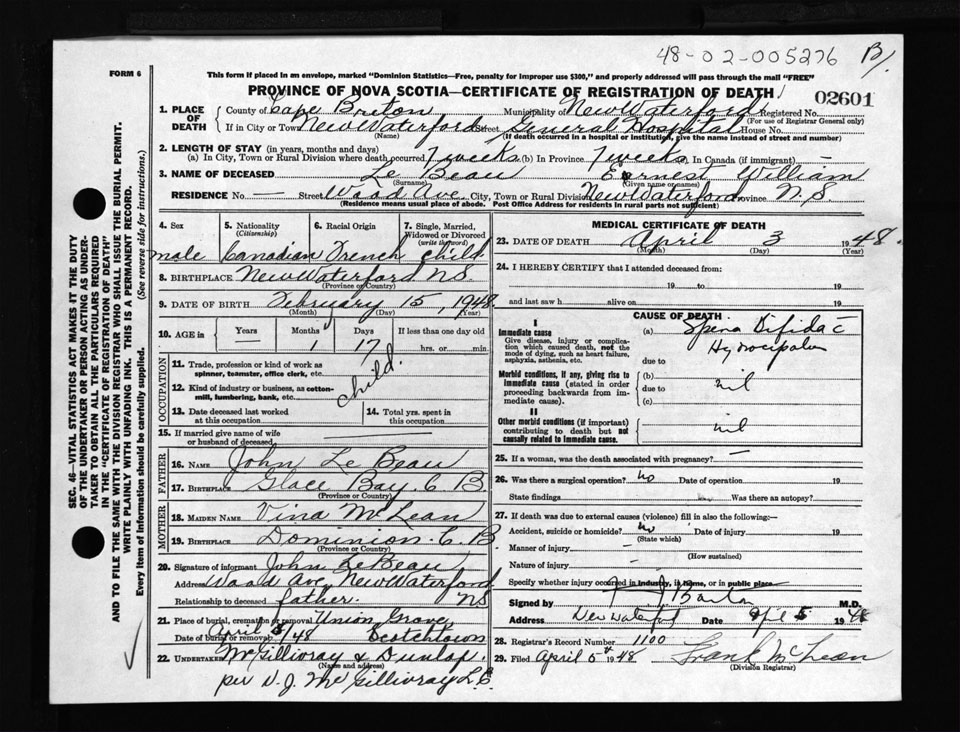 48-02-005276 B/
FORM 6
This form if placed in an envelope, marked "Dominion Statistics—Free, penalty for improper use $300," and properly addressed will pass through the mail "FREE"
PROVINCE OF NOVA SCOTIA—CERTIFICATE OF REGISTRATION OF DEATH
02601
1. PLACE OF DEATH
County of Cape Breton Municipality of New Waterford Registered No.
(For use of Registrar General only)
If in City or Town New Waterford Street General Hospital House No.
(Name) (If death occurred in a hospital or institution, give the name instead of street and number)
2. LENGTH OF STAY (in years, months and days)
(a) In City, Town or Rural Division where death occurred 7 weeks (b) In Province 7 weeks In Canada (if immigrant) —
3. NAME OF DECEASED Le Beau Earnest William
(Surname) (Given name or names)
RESIDENCE No. — Street Wood Ave. City, Town or Rural Division New Waterford Province N.S.
(Residence means usual place of abode. Post Office Address for residents in rural parts not sufficient)
4. Sex 5. Nationality (Citizenship) 6. Racial Origin 7. Single, Married, Widowed or Divorced (write the word)
male Canadian French child
8. BIRTHPLACE New Waterford NS
(Province or Country)
9. DATE OF BIRTH February 15, 1948.
(Month) (Day) (Year)
10. AGE in Years Months Days If less than one day old
— 1 17 hrs. or min.
OCCUPATION
11. Trade, profession or kind of work as spinner, teamster, office clerk, etc.
12. Kind of industry or business, as cotton-mill, lumbering, bank, etc.
child.
13. Date deceased last worked at this occupation
14. Total yrs. spent in this occupation
15. If married give name of wife or husband of deceased
FATHER
16. NAME John Le Beau
17. BIRTHPLACE Glace Bay, C B
(Province or Country)
MOTHER
18. MAIDEN NAME Vina McLean
19. BIRTHPLACE Dominion. C. B
(Province or Country)
20. Signature of informant John LeBeau
Address Wood Ave, New Waterford
NS
Relationship to deceased father.
21. Place of burial, cremation or removal Union Grove,
Date of burial or removal April 5/48 Scotchtown
22. UNDERTAKER McGillivray & Dunlap.
(Name and address)
per N. J. McGillivray L.E.
MEDICAL CERTIFICATE OF DEATH
23. DATE OF DEATH April 3 1948.
(Month) (Day) (Year)
24. I HEREBY CERTIFY that I attended deceased from:
19 to 19
and last saw h alive on 19
CAUSE OF DEATH
I
Immediate cause
Give disease, injury or complication which caused death, not the mode of dying, such as heart failure, asphyxia, asthenia, etc.
(a) Spina Bifida c
due to
Morbid conditions, if any, giving rise to immediate cause (stated in order proceeding backwards from immediate cause).
(b) nil
due to
(c)
II
Other morbid conditions (if important) contributing to death but not causally related to immediate cause.
nil
25. If a woman, was the death associated with pregnancy? —
26. Was there a surgical operation? no Date of operation 19
State findings Was there an autopsy?
27. If death was due to external causes (violence) fill in also the following:—
Accident, suicide or homicide? no Date of injury 19
(State which)
Manner of injury —
(How sustained)
Nature of injury —
Specify whether injury occurred in industry, in home, or in public place
Signed by M.D.
Address New Waterford Date Apl 5 1948
28. Registrar's Record Number 1100
29. Filed April 5th 1948 Frank McLean
(Division Registrar)
SEC. 46—VITAL STATISTICS ACT MAKES IT THE DUTY
OF THE UNDERTAKER OR PERSON ACTING AS UNDER-
TAKER TO OBTAIN ALL THE PARTICULARS REQUIRED
IN THE "CERTIFICATE OF REGISTRATION OF DEATH"
AND TO FILE THE SAME WITH THE DIVISION REGISTRAR WHO SHALL ISSUE THE BURIAL PERMIT.
WRITE PLAINLY WITH UNFADING INK. THIS IS A PERMANENT RECORD.
Every item of information should be carefully supplied. (See reverse side for instructions.)